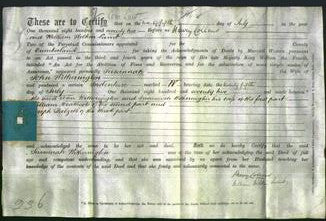 These are to Certify that on the twenty fifth day of July in the year
One thousand eight hundred and seventy two before Henry
and William
Two of the Perpetual Commissioners appointed for the County
of Cumberland for taking the Acknowledgments of Deeds by Married Women pursuant
to an Act passed in the third and fourth years of the reign of His late Majesty King William the Fourth,
intituled "An Act for the Abolition of Fines and Recoveries and for the substitution of more simple modes of
Assurance," appeared personally Susannah
John Witherington
and produced a certain Indenture marked bearing date the twenty fifth
day of July One thousand eight hundred and seventy two and made between
the said John Witherington and Susannah Witherington his wife of the first part
William of the second part and
Joseph of the third part
and acknowledged the same to be her act and deed. And we do hereby Certify that the said
Susannah Witherington was at the time of her acknowledging the said Deed of full
age and competent understanding, and that she was examined by us apart from her Husband touching her
knowledge of the contents of the said Deed and that she freely and voluntarily consented to the same.
Henry
William
936